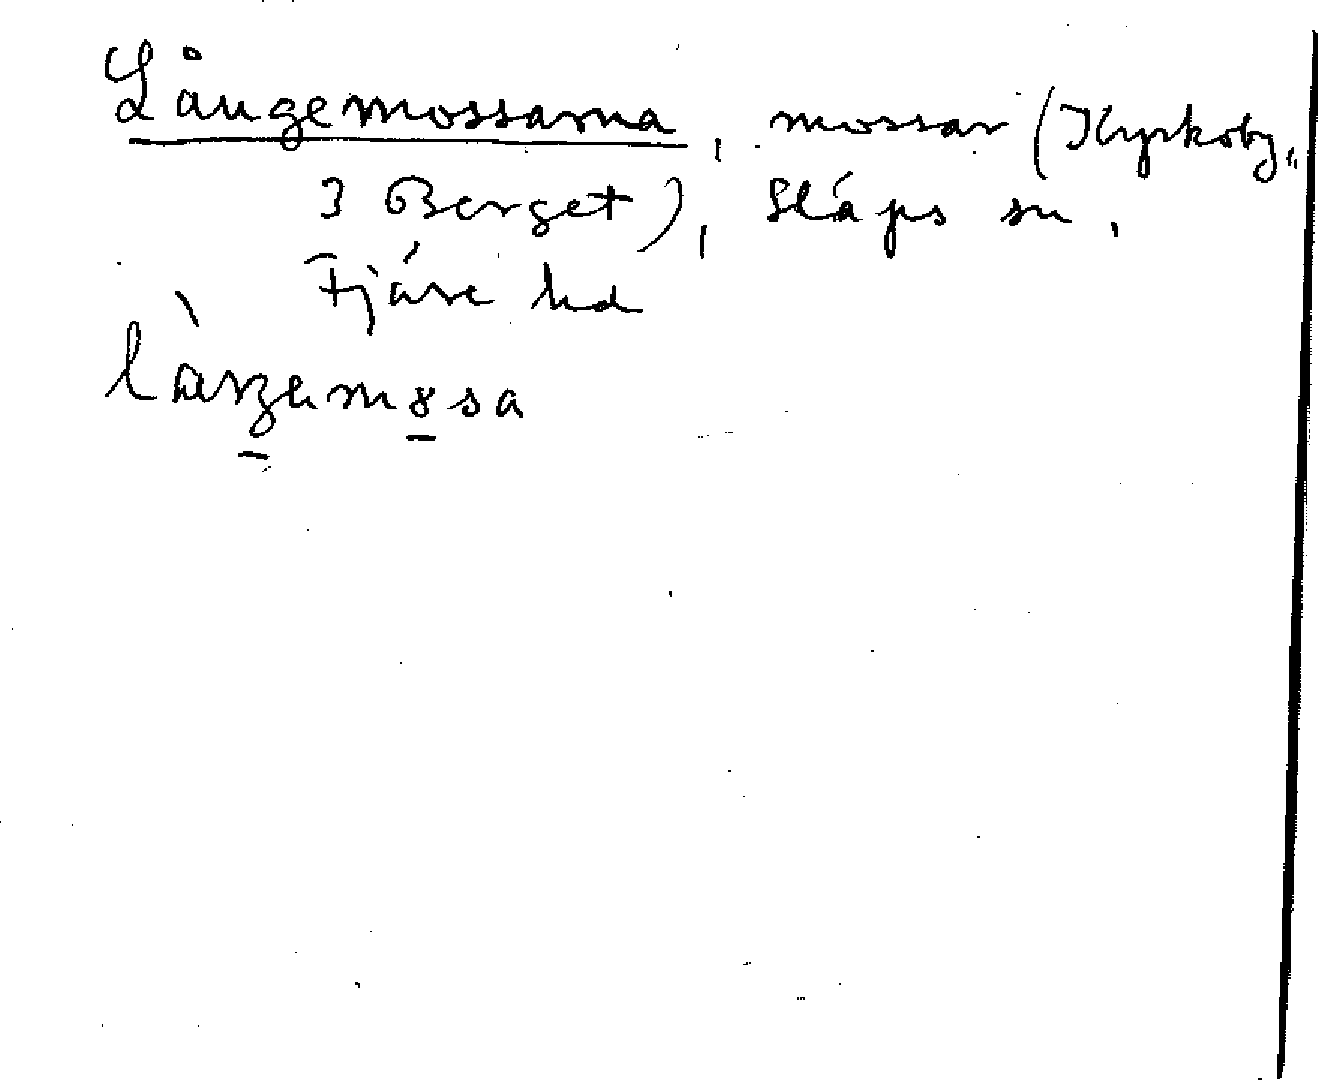 Långemossarna, mossar (Kyrkoby,
3 Berget), Släps sn,
Fjäre hd